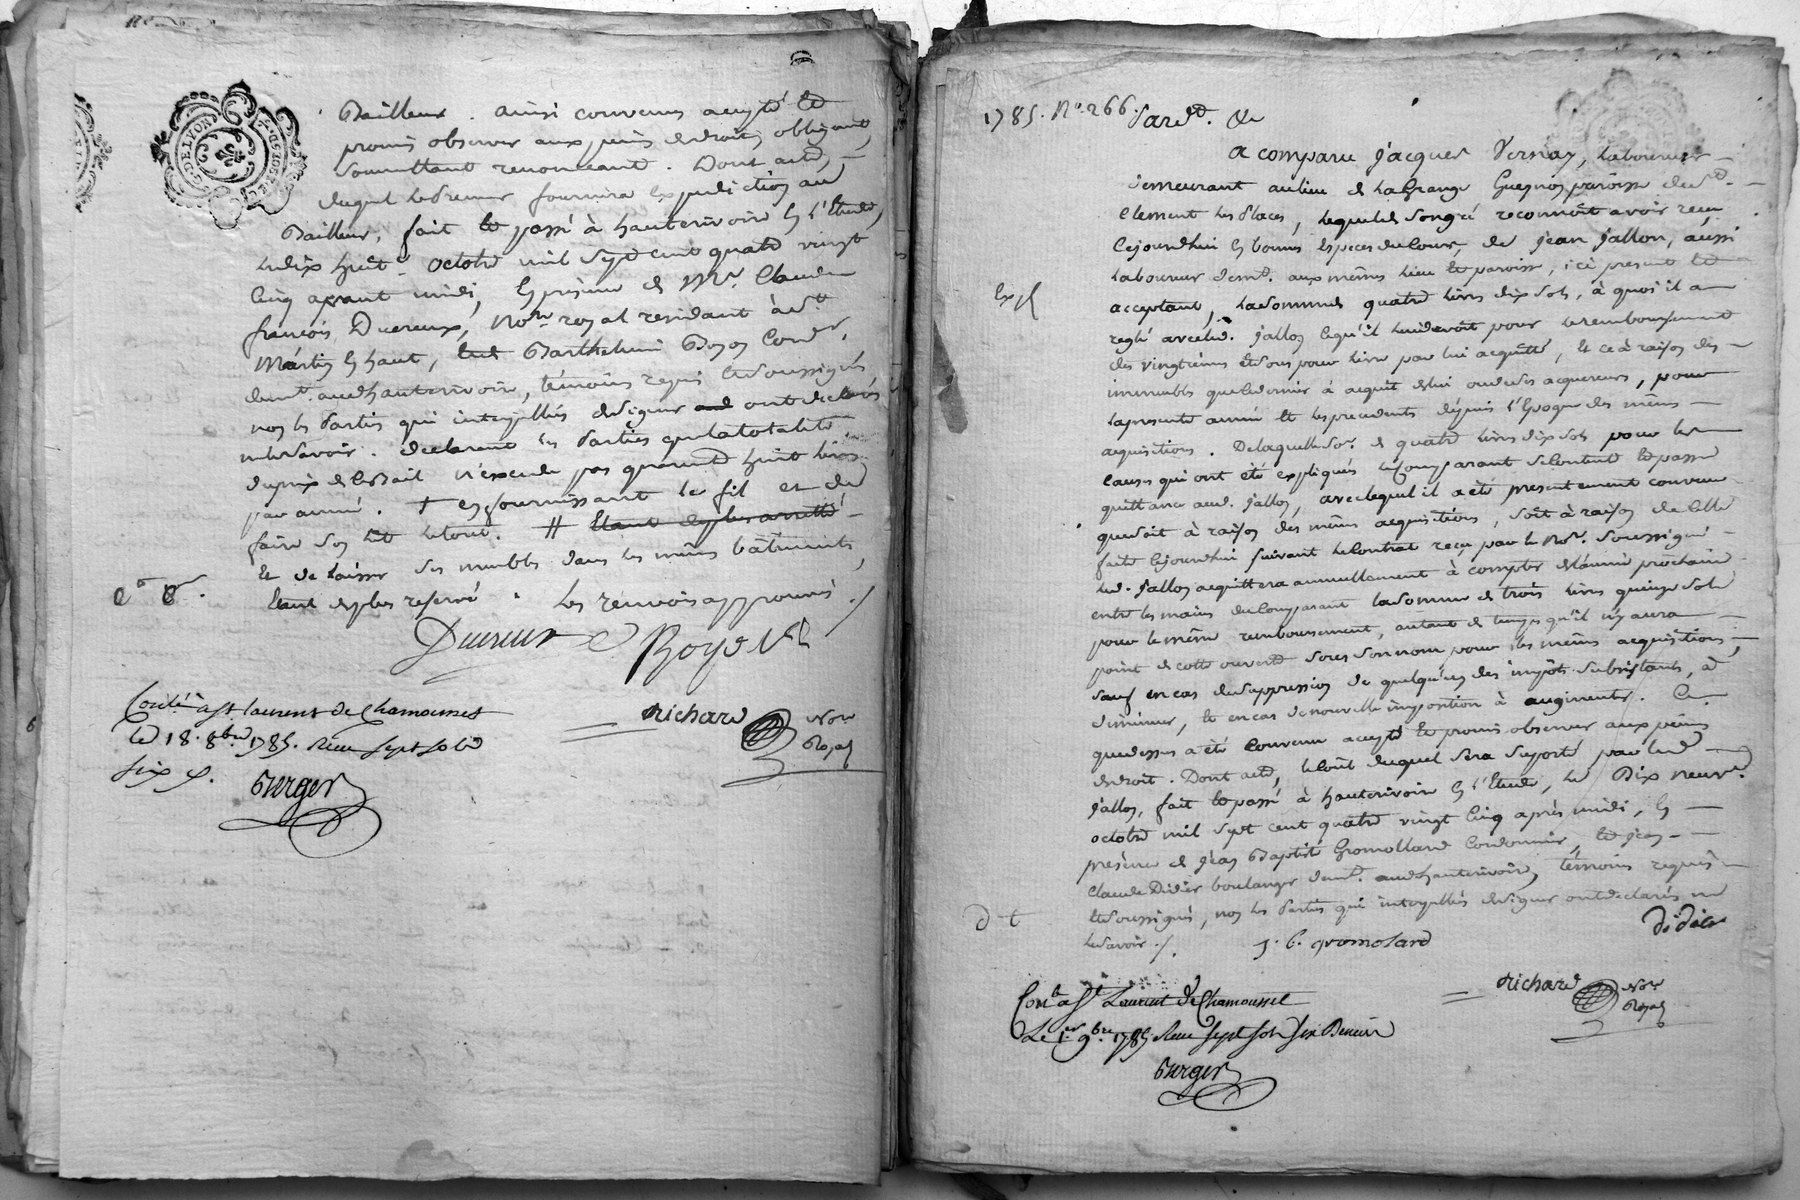 G. DE LYON
Bailleur. ainsi convenu accepté et
promis observer aux peines de droit, obligeant,
soumettant renonceant. Dont acte,
duquel le preneur fournira expedition au
Bailleur, fait et passé à hauterivoire en l'Etude,
le dix huit octobre mil sept cent quatre vingt
cinq avant midi, en presence de Mr. Claude
françois Ducreux, Nore. royal residant à St.
Martin en haut, et Barthelemi Boyon
demt. aud. hauterivoire, témoins requis et soussignés
non les parties qui interpellées de signer ont déclarés
ne le savoir. declarent les parties que la totalité
du prix de ce Bail n'excede pas quarante huit livres
par année. + en fournissant le fil et de
faire son lit et # étant de plus arretté
et de laisser ses meubles dans les mêmes bâtiments,
étant de plus reservé. les renvois approuvés ./
Ducreux Boyon
richard Nore Royal
Conlé. à St laurent de Chamousset
Le 18. 8bre 1785. Reçu sept sols
six d.
Berger
1785. No. 266. Pardt. &c
a comparu jacques Vernay, laboureur
demeurant au lieu de la Grange paroisse de St.
Clement les places, lequel de son gré reconnoit avoir reçu
cejourdhui en bonnes especes du cours, de jean jallon, aussi
laboureur demt. aux mêmes lieu et paroisse, ici present et
Exp
acceptant, la somme de quatre livres dix sols, à quoi il a
reglé avec led. jallon ce qu'il lui devoit pour le remboursement
des vingtiemes et sous pour livre par lui acquitté, et ce à raison des
immeubles que le dernier à acquit de lui ou de ses acquereurs, pour
la presente année et les precedentes depuis l'Epoque des mêmes
acquisitions. De laquelle some. de quatre livres dix sols pour les
causes qui ont été expliqués le Comparant se contente et passe
quittance aud. jallon, avec lequel il a été presentement convenu
que soit à raison des mêmes acquisitions, soit à raison de celle
faite cejourdhui suivant le Contrat reçu par le Nore. soussigné
led. jallon acquittera annuellement à compter de l'année prochaine
entre les mains du Comparant la somme de trois livres quinze sols
pour le même remboursement, autant de temps qu'il n'y aura
point de cotte ouverte sous son nom pour les mêmes acquisitions,
sauf en cas de suppression de quelqu'un des impôts subsistants, à
diminuer, et en cas de nouvelle imposition à augmenter. Ce
que dessus a été convenu accepté et promis observer aux peines
de droit. Dont acte, le coût duquel sera suporté par led.
jallon, fait et passé à hauterivoire en l'Etude, le Dix neuve.
octobre mil sept cent quatre vingt cinq après midi, en
presence de jean Baptiste Gromolland Cordonnier, et jean
Claude Didier boulanger demt. aud. hauterivoire, témoins requis
et soussignés, non les parties qui interpellées de signer ont declarés ne
le savoir ./.
j. b. gromolard
didier
richard Nore Royal
Conlé à St Laurent de Chamousset
Le 1er 9bre 1785. Reçu sept sols six Deniers
Berger